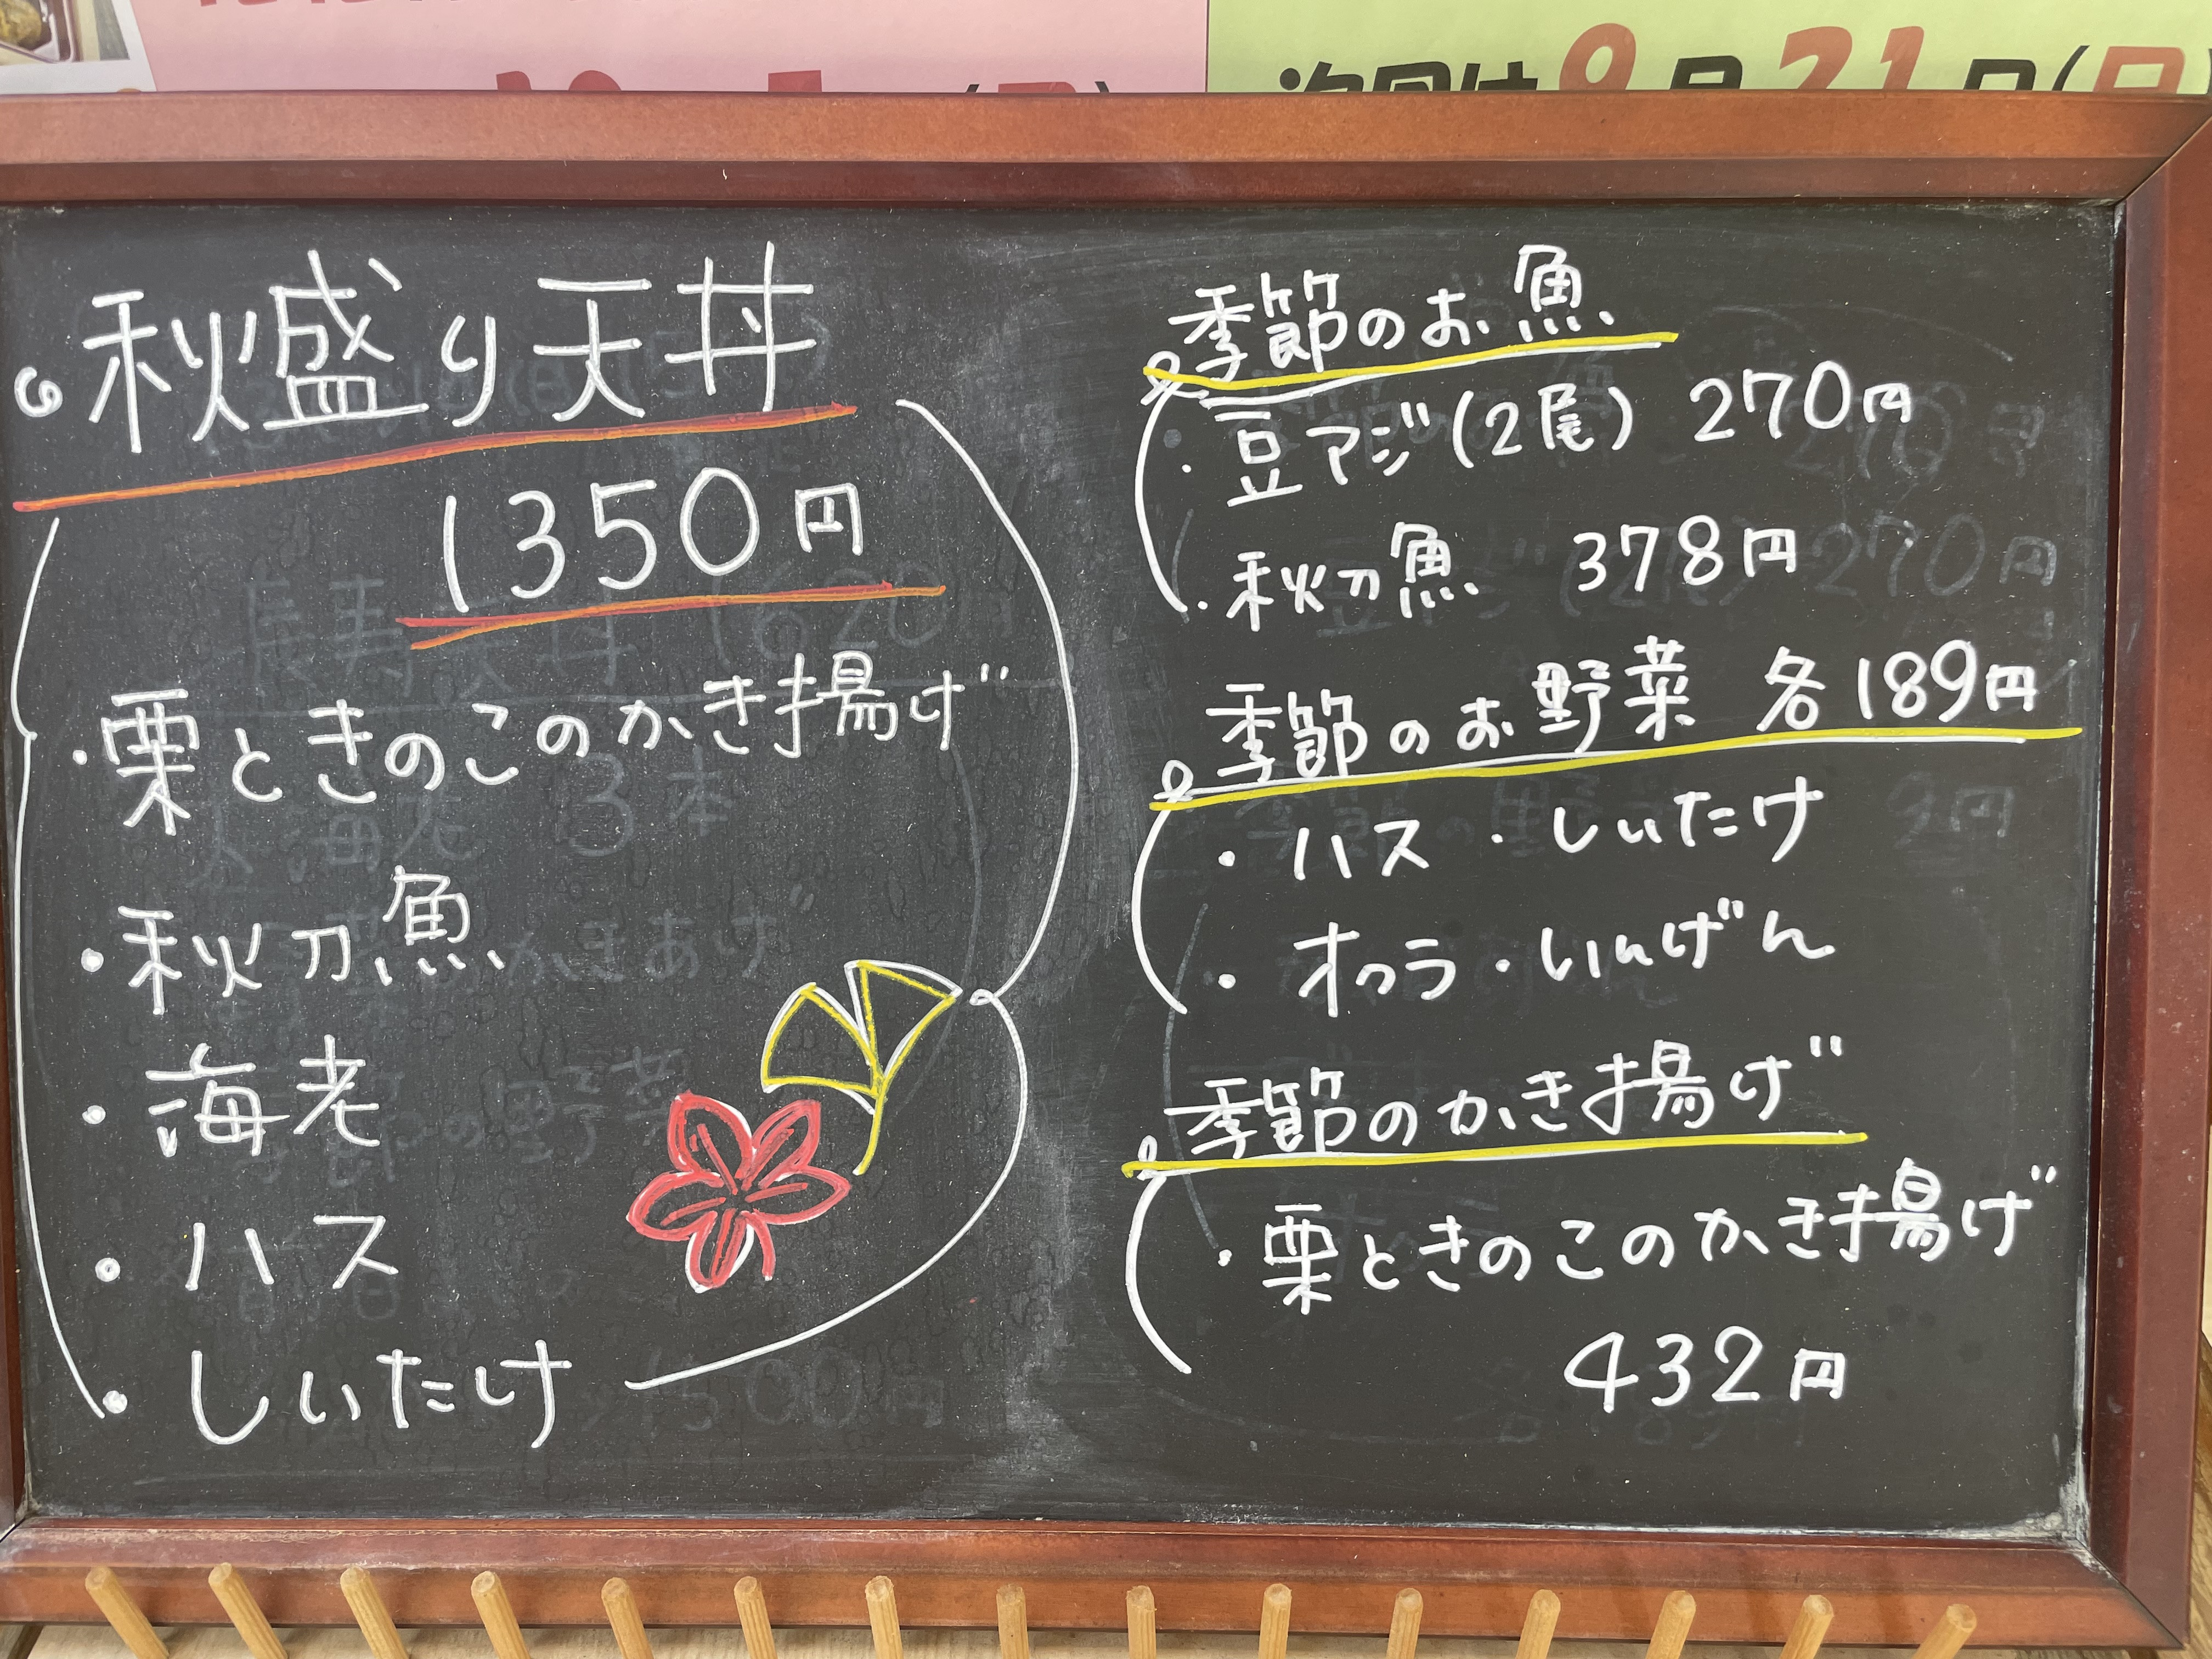 次回は9月21日(日)
秋盛り天丼
1350円
・栗ときのこのかき揚げ
・秋刀魚
・海老
・ハス
・しいたけ
季節のお魚
・豆アジ(2尾) 270円
・秋刀魚 378円
季節のお野菜 各189円
・ハス ・しいたけ
・オクラ ・いんげん
季節のかき揚げ
・栗ときのこのかき揚げ
432円